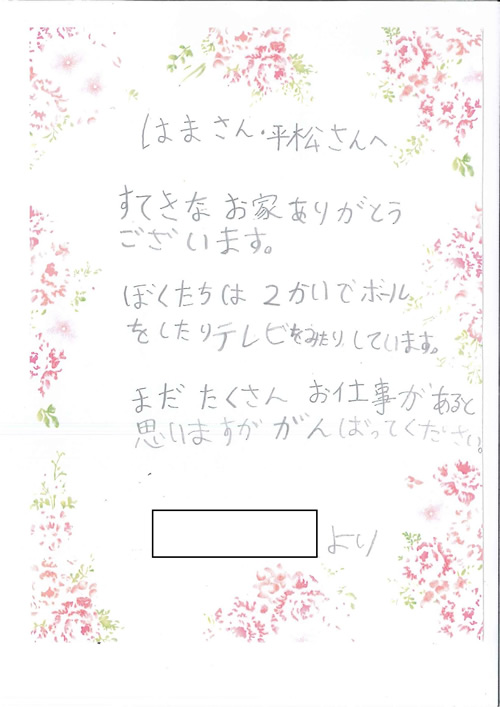 はまさん・平松さんへ
すてきなお家ありがとう
ございます。
ぼくたちは2かいでボール
をしたりテレビをみたりしています。
まだたくさんお仕事があると
思いますががんばってください。
より